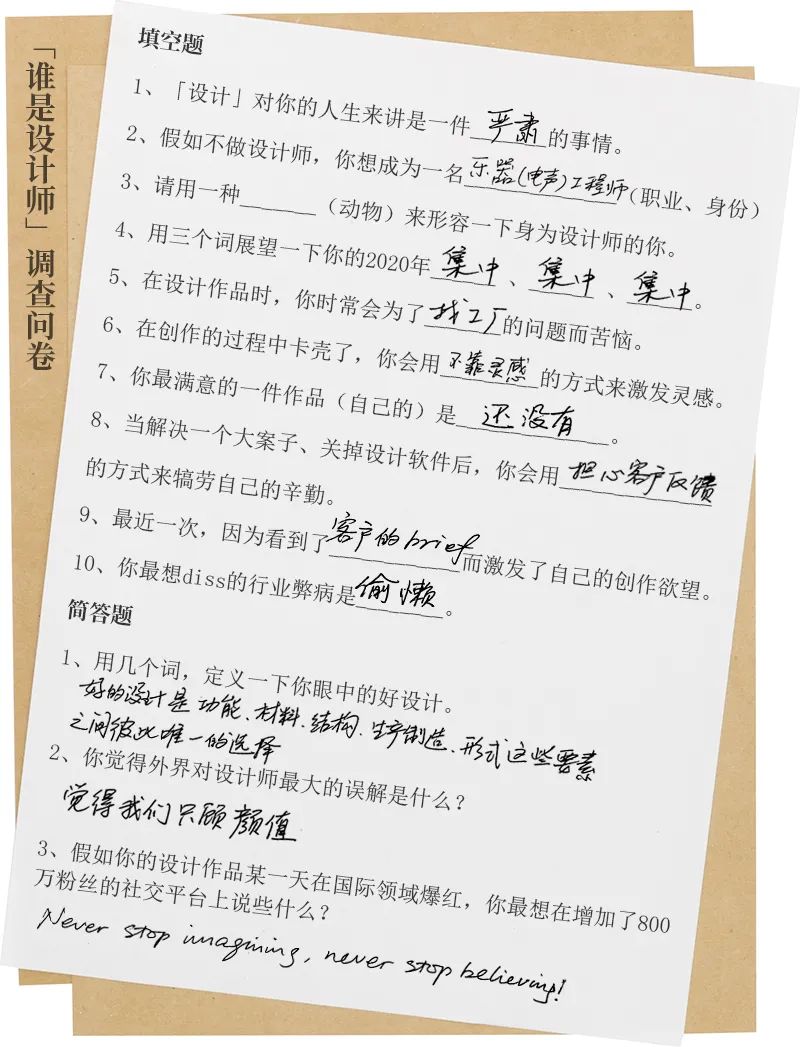 「谁是设计师」调查问卷
填空题
1、「设计」对你的人生来讲是一件 严肃 的事情。
2、假如不做设计师，你想成为一名乐器(电声)工程师(职业、身份)
3、请用一种______（动物）来形容一下身为设计师的你。
4、用三个词展望一下你的2020年 集中 、 集中 、 集中 。
5、在设计作品时，你时常会为了 找工厂 的问题而苦恼。
6、在创作的过程中卡壳了，你会用 不靠灵感 的方式来激发灵感。
7、你最满意的一件作品（自己的）是 还没有 。
8、当解决一个大案子、关掉设计软件后，你会用 担心客户反馈
的方式来犒劳自己的辛勤。
9、最近一次，因为看到了 客户的brief 而激发了自己的创作欲望。
10、你最想diss的行业弊病是 偷懒 。
简答题
1、用几个词，定义一下你眼中的好设计。
好的设计是功能、材料、结构、生产制造、形式这些要素
之间彼此唯一的选择
2、你觉得外界对设计师最大的误解是什么？
觉得我们只顾颜值
3、假如你的设计作品某一天在国际领域爆红，你最想在增加了800
万粉丝的社交平台上说些什么？
Never stop imagining, never stop believing!